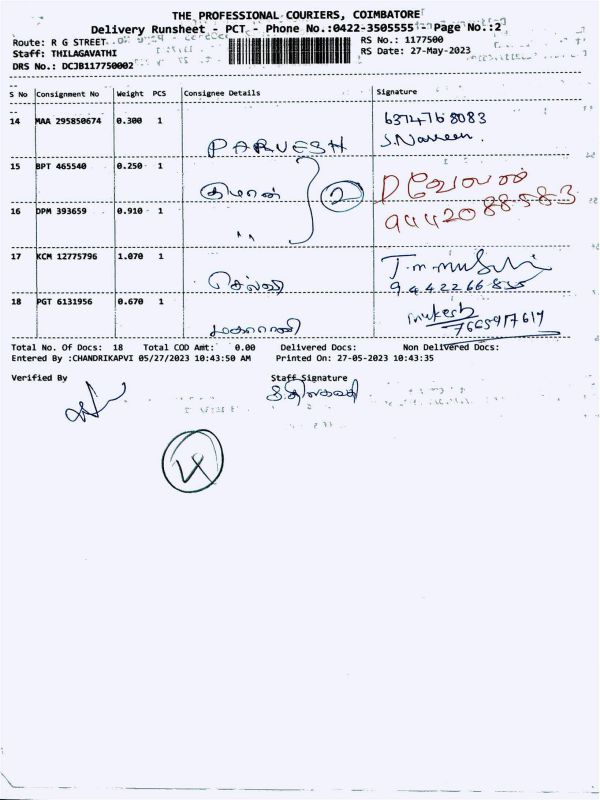 THE PROFESSIONAL COURIERS, COIMBATORE
Delivery Runsheet - PCT - Phone No.:0422-3505555 Page No.:2
Route: R G STREET
RS No.: 1177500
Staff: THILAGAVATHI
RS Date: 27-May-2023
DRS No.: DCJB117750002
S No Consignment No Weight PCS Consignee Details Signature
14 MAA 295850674 0.300 1 PARVESH 6374768083
S.Nasreen.
15 BPT 465540 0.250 1 2
16 DPM 393659 0.910 1 " 9442088583
17 KCM 12775796 1.070 1 செல்வி
18 PGT 6131956 0.670 1 மகாராணி mukesh
7665917617
Total No. Of Docs: 18 Total COD Amt: 0.00 Delivered Docs: Non Delivered Docs:
Entered By :CHANDRIKAPVI 05/27/2023 10:43:50 AM Printed On: 27-05-2023 10:43:35
Verified By Staff Signature